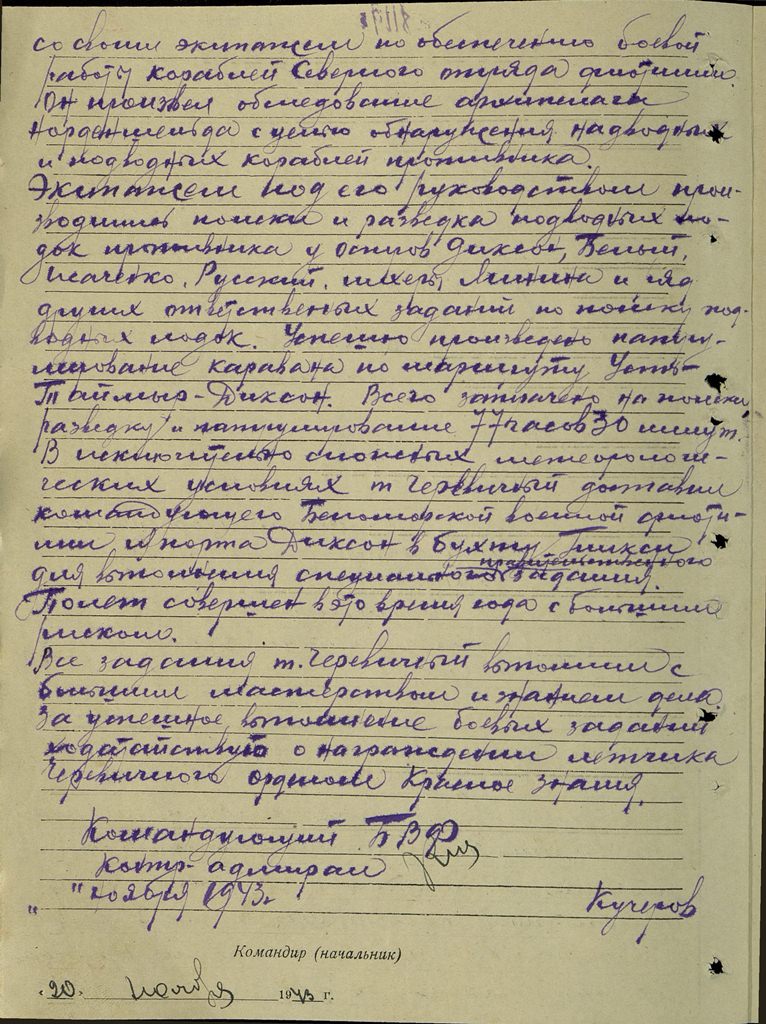 со своим экипажем по обеспечению боевой
работы кораблей Северного отряда флотилии.
Он произвел обследование архипелага
Норденшельда с целью обнаружения надводных
и подводных кораблей противника.
Экипажем под его руководством произ-
водились поиски и разведка подводных ло-
док противника у остров Диксон, Белый,
Исаченко, Русский, шхеры Минина и ряд
других ответственных заданий по поиску под-
водных лодок. Успешно произведено патру-
лирование каравана по маршруту Усть-
Таймыр-Диксон. Всего затрачено на поиски,
разведку и патрулирование 77 часов 30 минут.
В исключительно сложных метеорологи-
ческих условиях т Черевичный доставил
командующего Беломорской военной флоти-
лии из порта Диксон в бухту Тикси
правительственного
для выполнения специального задания.
Полет совершен в это время года с большим
риском.
Все задания т. Черевичный выполнил с
большим мастерством и знанием дела.
За успешное выполнение боевых заданий
ходатайствую о награждении летчика
Черевичного орденом Красное Знамя.
Командующий БВФ
контр-адмирал
" " ноября 1943г
Кучеров
Командир (начальник)
"20" ноября 1943 г.